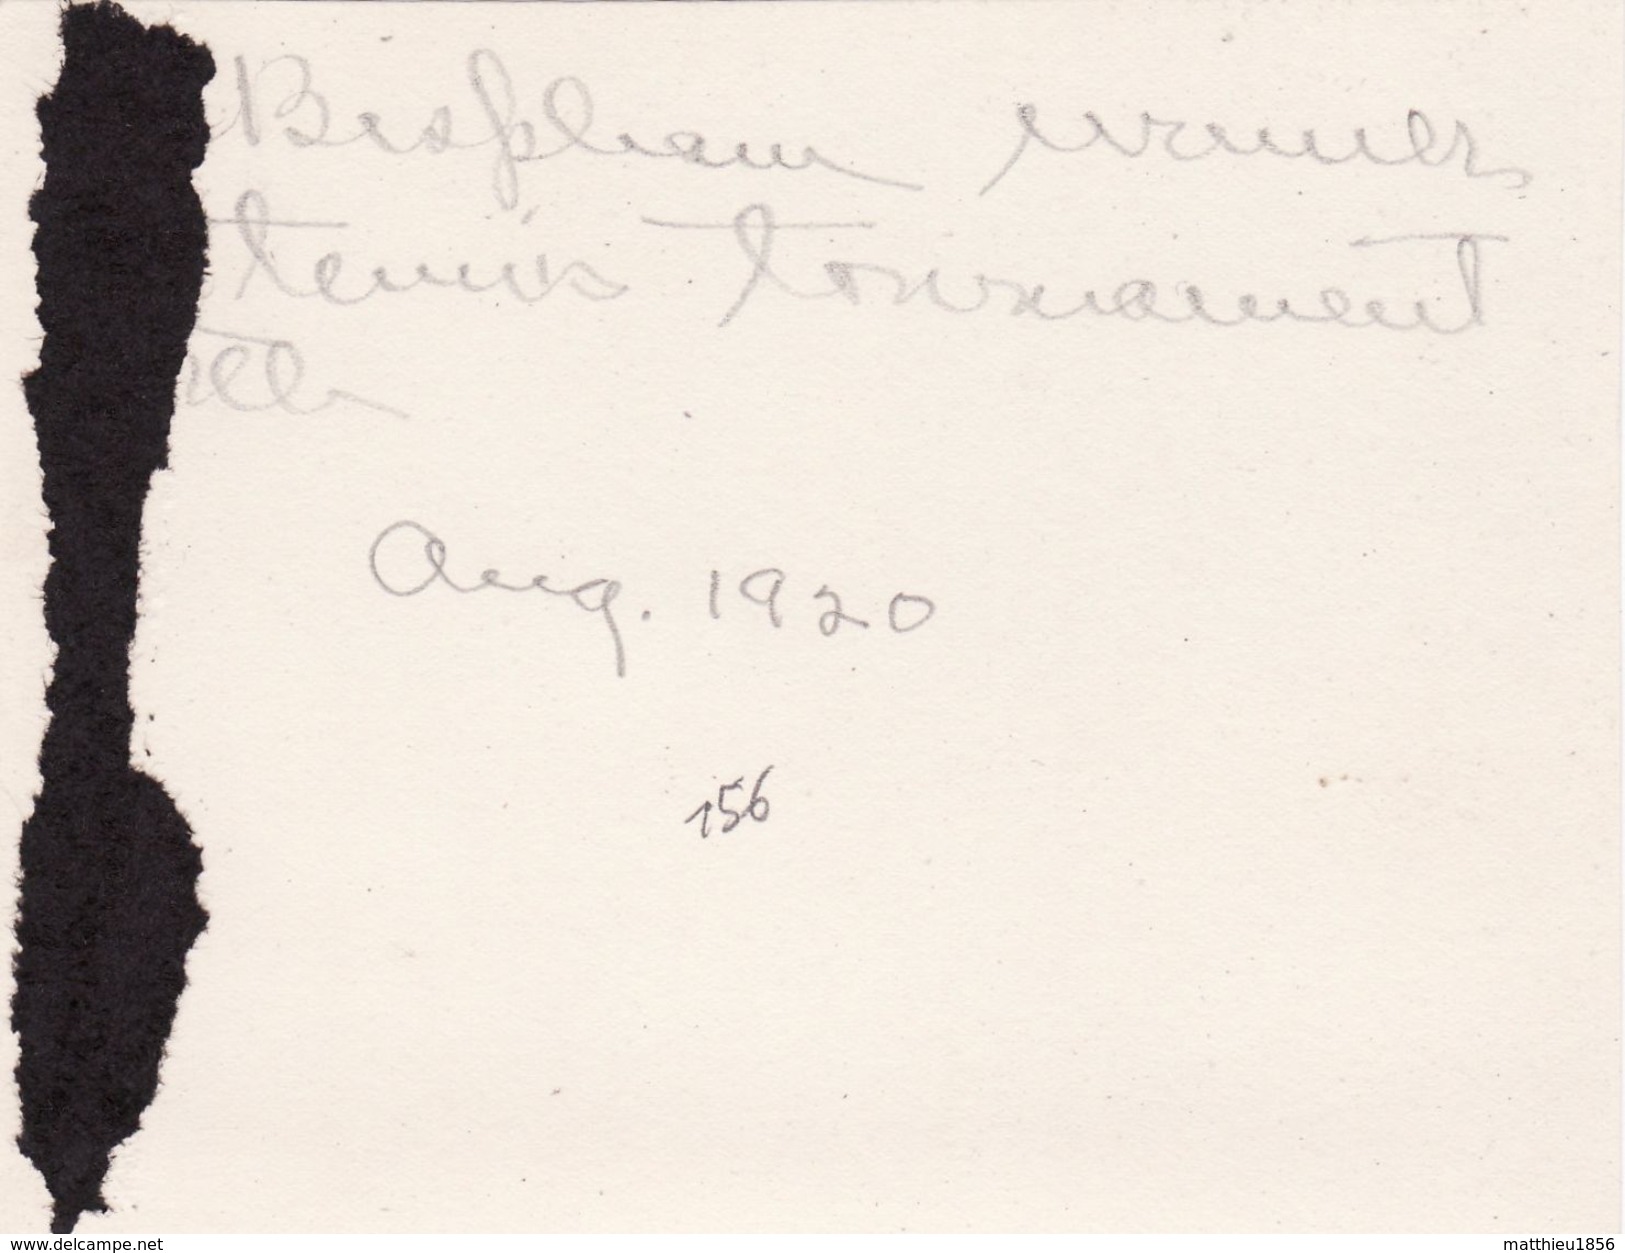 Bispham winner
tennis tournament
Aug. 1920
156
www.delcampe.net
matthieu1856